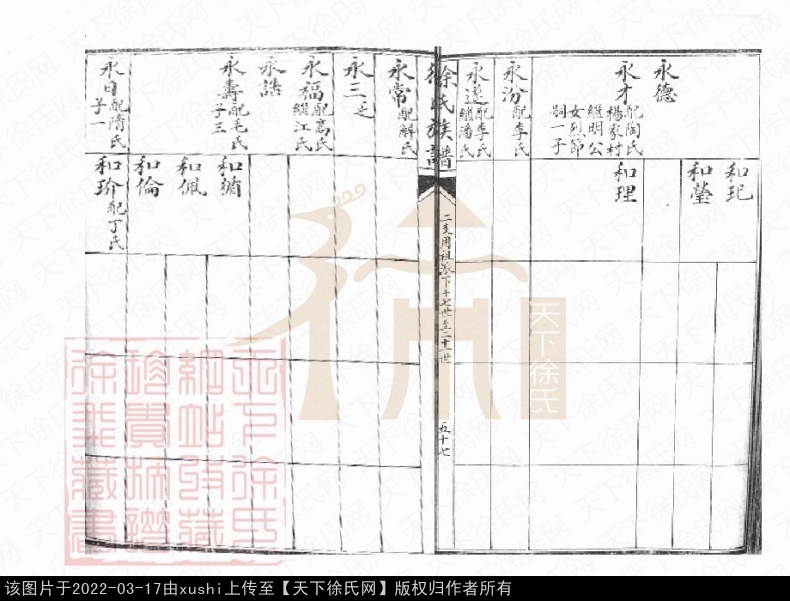 和玘
和瑩
永德
永才配陶氏
楊家村
繼明公
女烈節
嗣一子
和理
永汾配李氏
永遠配李氏
繼潘氏
徐氏族譜
二支用祖派下十七世至二十世
五十七
永常配解氏
永三乏
永福配高氏
繼江氏
永誥
永壽配毛氏
子三
和脩
和佩
和倫
永日配隋氏
子一
和珍配丁氏
天下徐氏
该图片于2022-03-17由xushi上传至【天下徐氏网】版权归作者所有